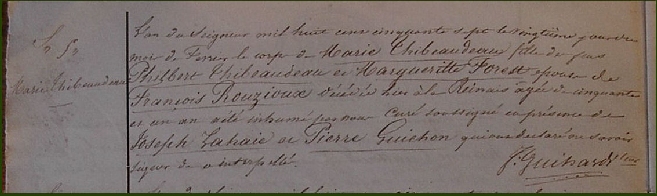 S. 52
Marie Thibeaudeau
L'an du Seigneur mil huit cent cinquante sept le vingtième jour du
mois de Février le corps de Marie Thibeaudeau fille de feus
Philbert Thibeaudeau et Margueritte Forest epouse de
François Rouzioux décédée hier à la agée de cinquante
et un an a été inhumé par nous Curé soussigné en présence de
Joseph Lahaie et Pierre Guichon qui ont déclaré ne savoir
signer de ce interpellé.
J. Guihard